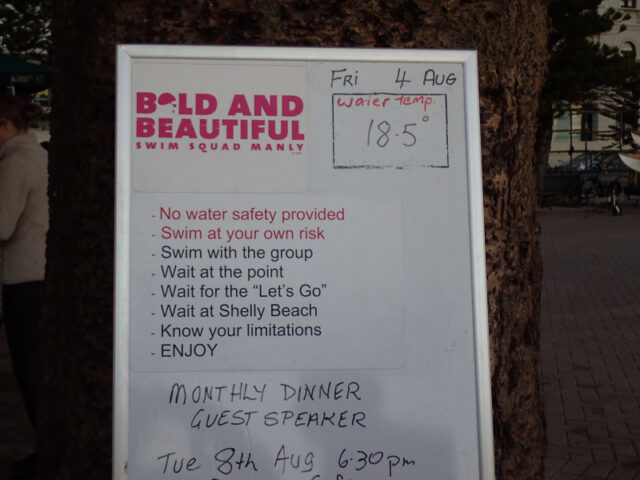 FRI 4 AUG
BOLD AND
BEAUTIFUL
SWIM SQUAD MANLY
water temp.
18.5°
- No water safety provided
- Swim at your own risk
- Swim with the group
- Wait at the point
- Wait for the “Let's Go”
- Wait at Shelly Beach
- Know your limitations
- ENJOY
MONTHLY DINNER
GUEST SPEAKER
Tue 8th Aug 6.30pm